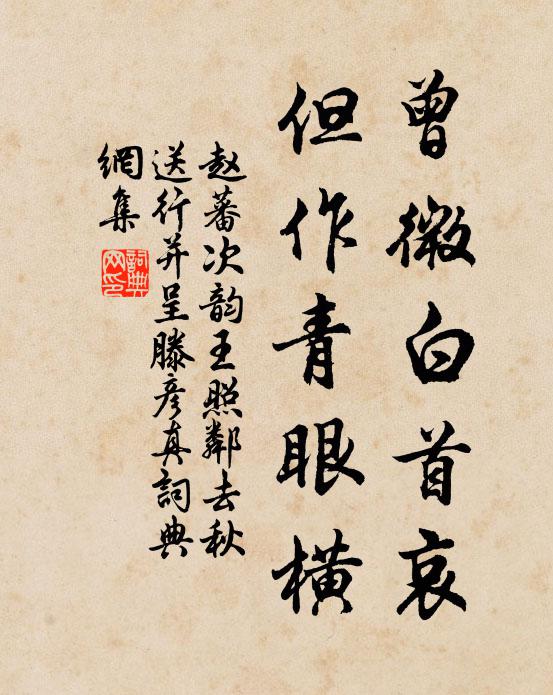 曾微白首哀
但作青眼横
赵蕃次韵王照鄰去秋
送行并呈滕彦真詞典
網集
詞典
网印